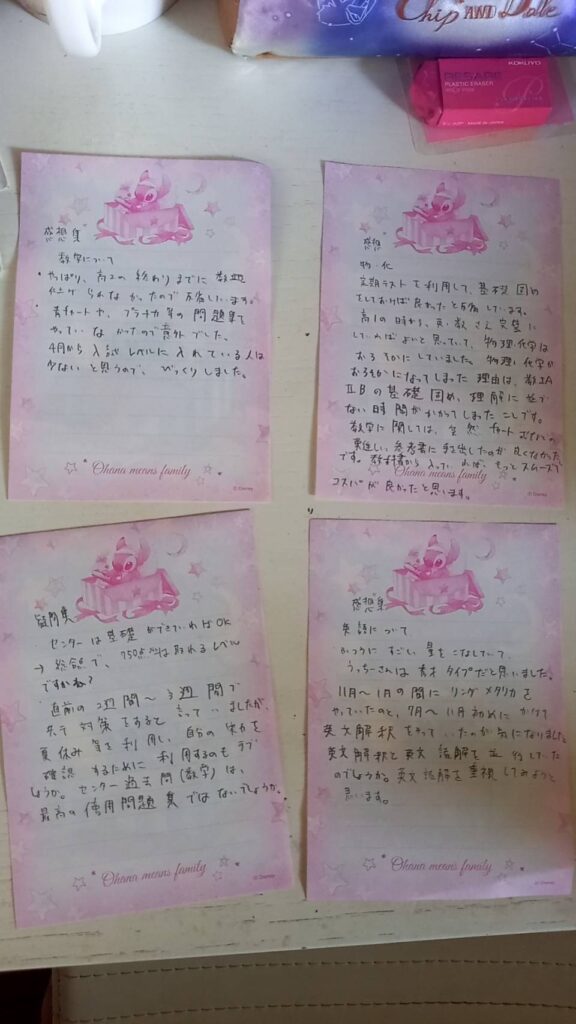 Chip AND Dale
KOKUYO
PLASTIC ERASER
感想集
数学について
・やっぱり、高2の終わりまでに数ⅢCが
仕上げられなかったので反省しています。
・青チャートや、プラチカ等の問題集を
やっていなかったので意外でした。
4月から入試レベルに入れている人は
少ないと思うので、びっくりしました。
Ohana means family
© Disney
感想
物・化
定期テストを利用して、基礎固め
をしておけば良かったと反省しています。
高1の時から、英・数さえ完璧に
していればよいと思っていて、物理・化学は
おろそかにしていました。物理・化学が
おろそかになってしまった理由は、数ⅠA
ⅡBの基礎固め、理解に並で
ない時間がかかってしまったことです。
数学に関しては、全然チャートなどの
難しい参考書に手を出したのが良くなかった
です。教科書から入っていれば、もっとスムーズで
コスパが良かったと思います。
Ohana means family
© Disney
疑問集
・センターは基礎ができていればOK
→ 総合で、750点は取れるレベル
ですかね?
・直前の2週間〜3週間で
対策をすると言っていましたが、
夏休み等を利用し、自分の実力を
確認するために利用するのもアリで
しょうか。センター過去問(数学)は、
最高の使用問題集ではないでしょうか。
Ohana means family
© Disney
感想集
英語について
かっつりにすごい量をこなしていて、
うっちーさんは秀才タイプだと思いました。
11月〜1月の間にリンガメタリカを
やっていたのと、7月〜11月初めにかけて
英文解釈をやっていたのが気になりました。
英文解釈と英文読解を並行していた
のでしょうか。英文読解を重視してみようと
思います。
Ohana means family
© Disney